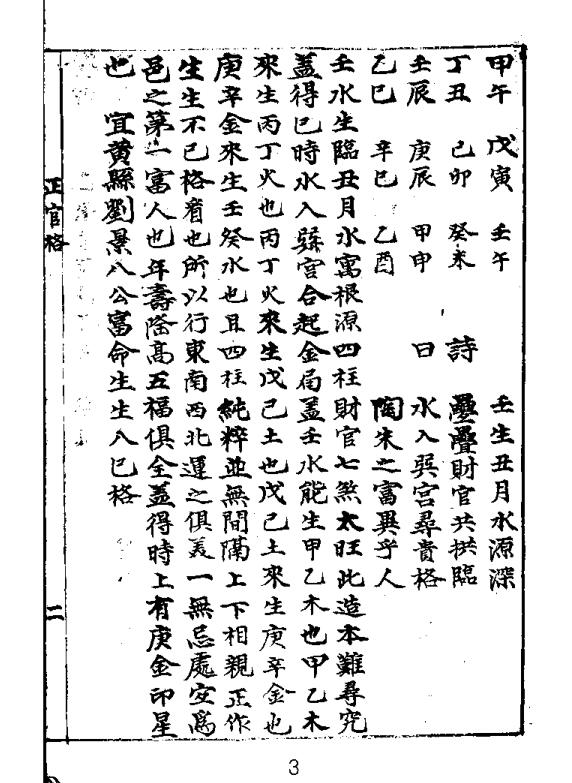 甲午　戊寅　壬午　　　壬生丑月水源深
丁丑　己卯　癸未　詩　疊疊財官共拱臨
壬辰　庚辰　甲申　曰　水入巽宮尋貴格
乙巳　辛巳　乙酉　　　陶朱之富異乎人
壬水生臨丑月水寓根源四柱財官七煞太旺此造本難尋究
蓋得巳時水入巽宮合起金局蓋壬水能生甲乙木也甲乙木
來生丙丁火也丙丁火來生戊己土也戊己土來生庚辛金也
庚辛金來生壬癸水也且四柱純粹並無間隔上下相親正作
生生不已格看也所以行東南西北運之俱美一無忌處宜為
邑之第一富人也年壽隆高五福俱全蓋得時上有庚金印星
也　宜黃縣劉景八公富命生生八巳格
正官格
二
3